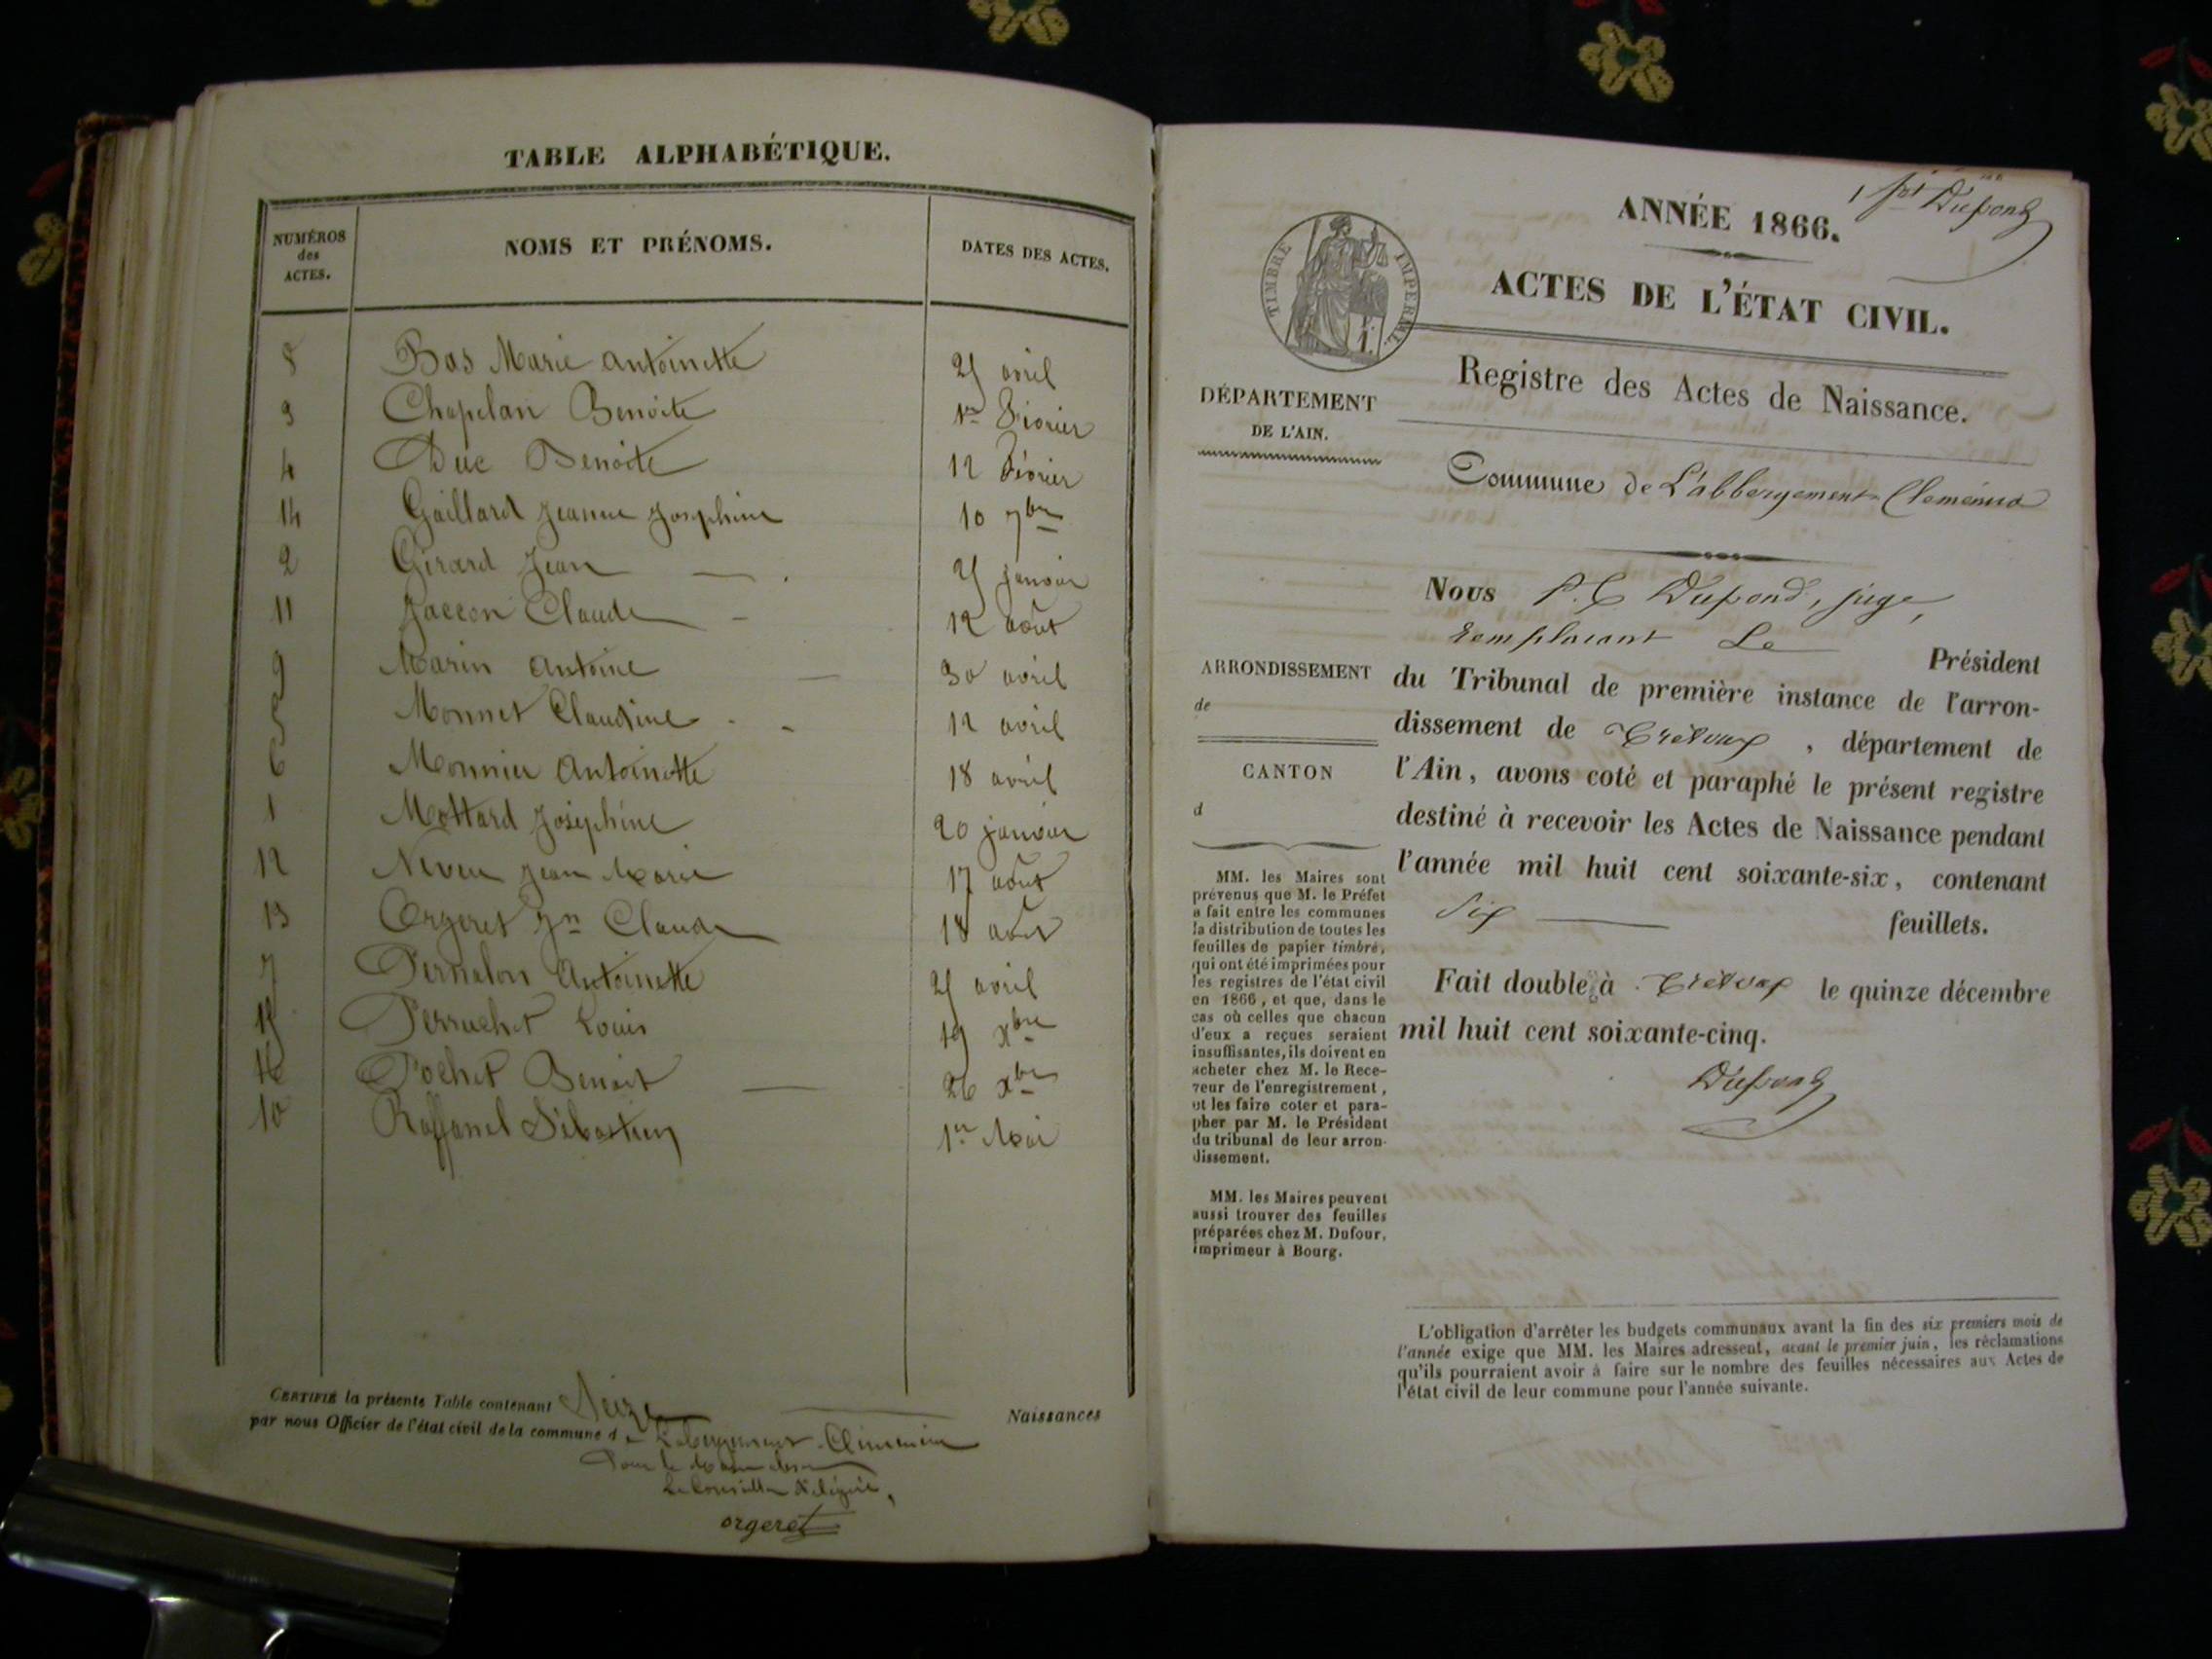 TABLE ALPHABÉTIQUE.
NUMÉROS des ACTES. NOMS ET PRÉNOMS. DATES DES ACTES.
8 Bas Marie Antoinette 25 avril
3 Chapelan Benoite 1er Février
4 Duc Benoite 12 Février
14 Gaillard Jeanne Joséphine 10 7bre
2 Girard Jean 25 janvier
11 Jaccon Claude 12 août
9 Marin Antoine 30 avril
5 Monnet Claudine 12 avril
6 Monnier Antoinette 18 avril
1 Mottard Joséphine 20 janvier
12 Neveu Jean Marie 17 août
13 Orgeret Jn Claude 18 août
7 Pernelon Antoinette 25 avril
15 Perruchet Louis 19 xbre
16 Pochet Benoit 26 xbre
10 Raffanel Sébastien 1er Mai
CERTIFIÉ la présente Table contenant Seize Naissances
par nous Officier de l'état civil de la commune de L'abergement-Clémencia
Pour le Maire absent
Le Conseiller délégué,
orgeret
1er Dupond
ANNÉE 1866.
TIMBRE IMPERIAL
1.
ACTES DE L'ÉTAT CIVIL.
Registre des Actes de Naissance.
DÉPARTEMENT
DE L'AIN.
Commune de L'abbergement-Clemencia
ARRONDISSEMENT
de
CANTON
d
MM. les Maires sont
prévenus que M. le Préfet
a fait entre les communes
la distribution de toutes les
feuilles de papier timbré,
qui ont été imprimées pour
les registres de l'état civil
en 1866, et que, dans le
cas où celles que chacun
d'eux a reçues seraient
insuffisantes, ils doivent en
acheter chez M. le Rece-
veur de l'enregistrement,
et les faire coter et para-
pher par M. le Président
du tribunal de leur arron-
dissement.
MM. les Maires peuvent
aussi trouver des feuilles
préparées chez M. Dufour,
imprimeur à Bourg.
Nous P. C Dupond, juge,
remplacant Le Président
du Tribunal de première instance de l'arron-
dissement de Trévoux, département de
l'Ain, avons coté et paraphé le présent registre
destiné à recevoir les Actes de Naissance pendant
l'année mil huit cent soixante-six, contenant
Six feuillets.
Fait double à Trévoux le quinze décembre
mil huit cent soixante-cinq.
Dupond
L'obligation d'arrêter les budgets communaux avant la fin des six premiers mois de
l'année exige que MM. les Maires adressent, avant le premier juin, les réclamations
qu'ils pourraient avoir à faire sur le nombre des feuilles nécessaires aux Actes de
l'état civil de leur commune pour l'année suivante.